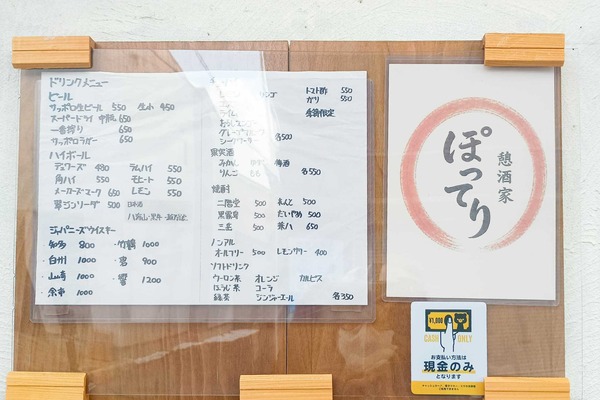 ドリンクメニュー
ビール
サッポロ生ビール 550 生小 450
スーパードライ 中瓶 650
一番搾り 650
サッポロラガー 650
ハイボール
デュワーズ 480 ラムハイ 550
角ハイ 550 モヒート 550
メーカーズマーク 650 レモン 550
翠ジンソーダ 500
ジャパニーズウイスキー
・知多 800 ・竹鶴 1000
・白州 1000 900
・山崎 1000 ・響 1200
・余市 1000
トマト酢 550
ガリ 550
季節限定
各500
果実酒
みかん 梅酒
りんご もも 各550
焼酎
二階堂 500 れんと 500
黒霧島 500 だいやめ 500
三岳 500 茉八 650
ノンアル
オールフリー 500 レモンサワー 400
ソフトドリンク
ウーロン茶 オレンジ カルピス
ほうじ茶 コーラ
緑茶 ジンジャーエール 各350
憩酒家
ぽってり
¥1,000
CASH ONLY
お支払い方法は
現金のみ
となります